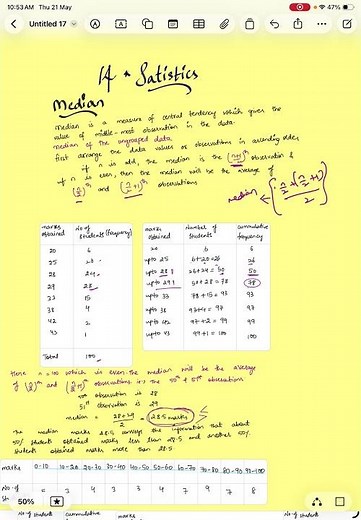 10:53 AM Thu 21 May
47%
Untitled 17
14 * Satistics
Median
Median is a measure of central tendency which gives the
value of middle-most observation in the data.
median of the ungrouped data.
first arrange the data values or observations in ascending order
if n is odd, the median is the observation &
if n is even, then the median will be the average of
(n/2)th and (n/2+1)th observations
median
marks obtained | No of students (frequency)
20 | 6
25 | 20
28 | 24
29 | 28
33 | 15
38 | 4
42 | 2
43 | 1
Total | 100
marks obtained | Number of students | cummulative frequency
20 | 6 | 6
upto 25 | 6+20=26 | 26
upto 28 | 26+24=50 | 50
upto 29 | 50+28=78 | 78
upto 33 | 78+15=93 | 93
upto 38 | 93+4=97 | 97
upto 42 | 97+2=99 | 99
upto 43 | 99+1=100 | 100
Here n=100 which is even. The median will be the average
of (n/2)th and (n/2+1)th observations i.e the 50th & 51st observations
50th observation is 28
51st observation is 29
median = 28+29/2 = 28.5 marks
The median marks 28.5 conveys the information that about
50% students obtained marks less than 28.5 and another 50%
students obtained marks more than 28.5.
marks | 0-10 | 10-20 | 20-30 | 30-40 | 40-50 | 50-60 | 60-70 | 70-80 | 80-90 | 90-100
No. of
3 4 3 3 4 7 9 7 8
50%
No of student cummulative marks No of student